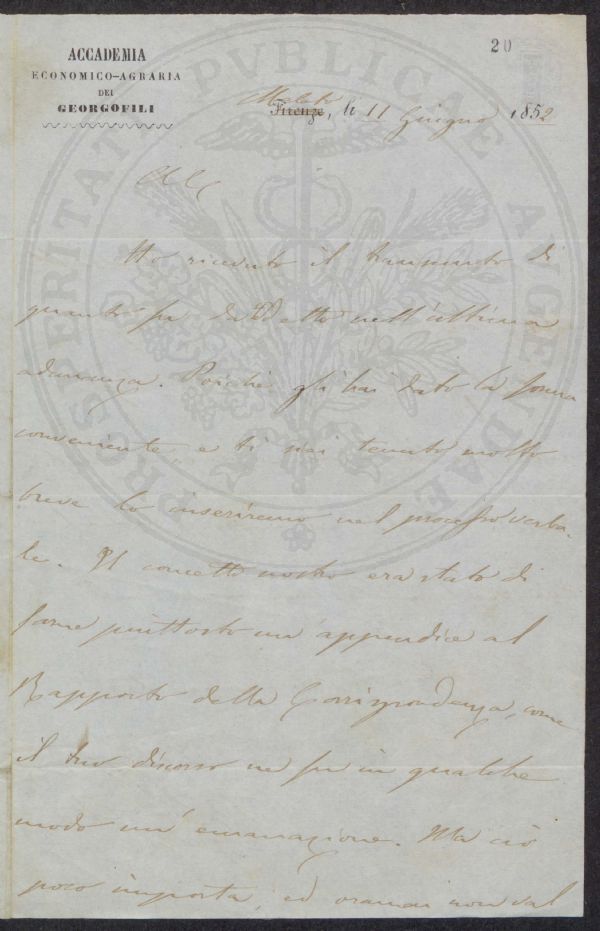 20
ACCADEMIA
ECONOMICO-AGRARIA
DEI
GEORGOFILI
Firenze, li 11 Giugno 1852
PROSPERITATI PVBLICAE AVGENDAE
Ho ricevuto il transunto di
quanto fu da te detto nell'ultima
adunanza. Poiché gli hai dato la forma
conveniente, e ti sei tenuto molto
breve lo inseriremo nel processo verba-
le. Il concetto nostro era stato di
farne piuttosto un'appendice al
Rapporto della Corrispondenza, come
il tuo discorso ne fu in qualche
modo un'emanazione. Ma ciò
poco importa, ed oramai non val